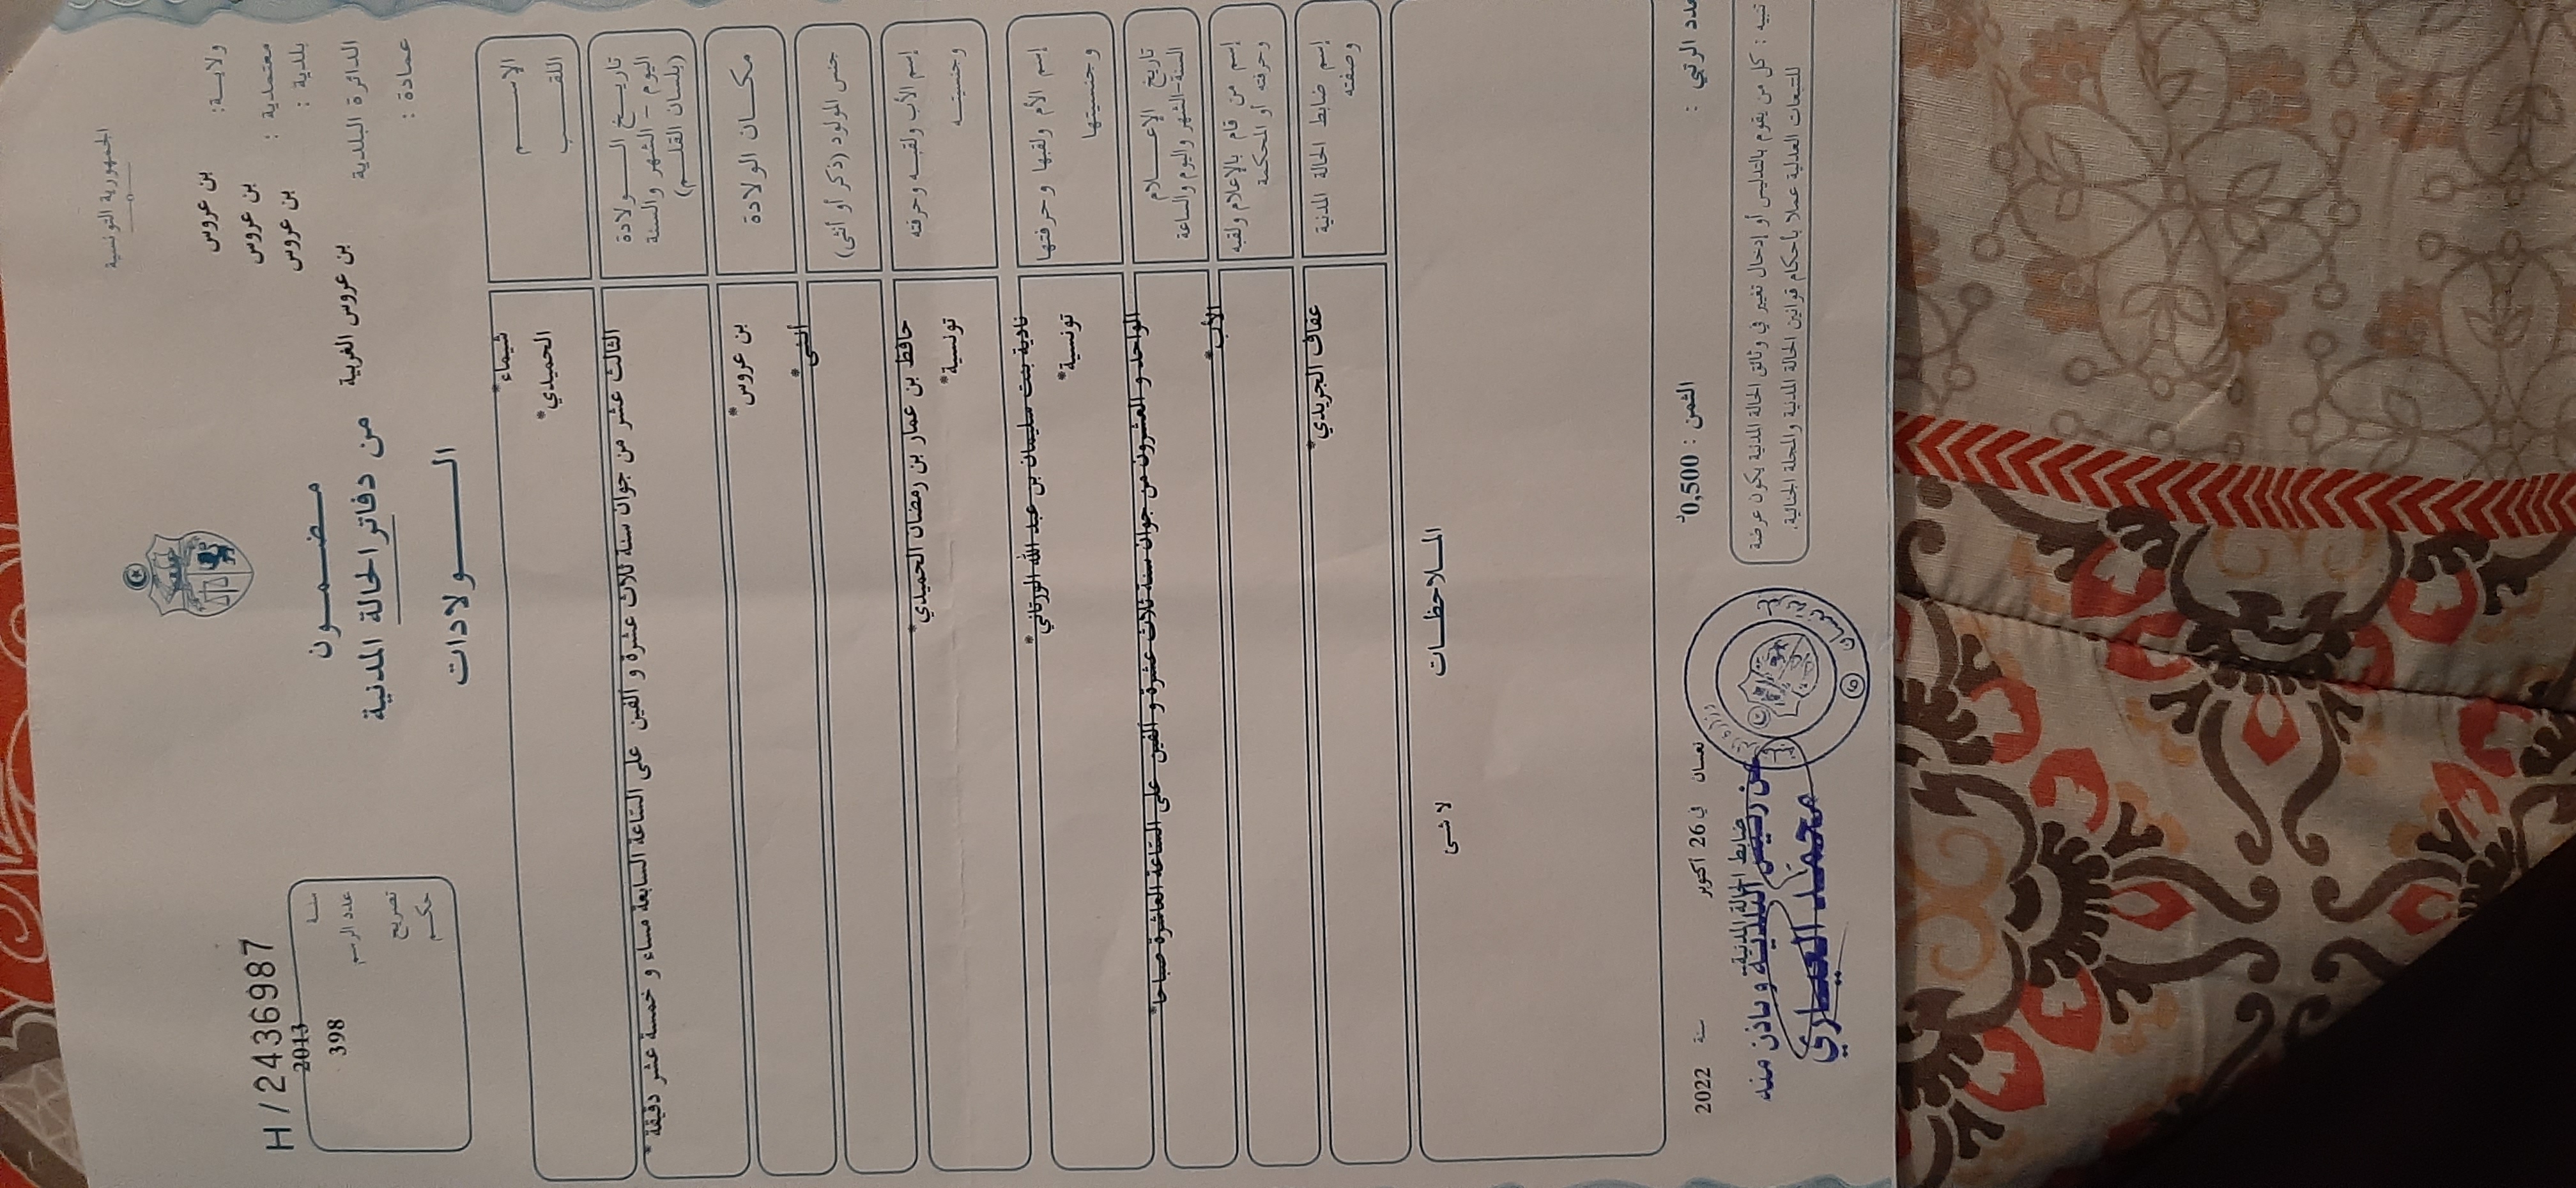 الجمهورية التونسية
ولايــة: بن عروس
معتمدية : بن عروس
بلدية : بن عروس
الدائرة البلدية بن عروس الغربية
عمادة :
H/2436987
سنة 2013
عدد الرسم 398
تصريح
حكم
مضمــون
من دفاتر الحالة المدنية
الــولادات
الاســـم شيماء*
اللقـب الحميدي*
تاريـــخ الـــولادة
اليوم - الشهر والسنة
(بلسان القلـم)
الثالث عشر من جوان سنة ثلاث عشرة و ألفين على الساعة السابعة مساء و خمسة عشر دقيقة*
مكــان الولادة بن عروس*
جنس المولود (ذكر أو أنثى) أنثى*
إسم الأب ولقبـه وحرفته حافظ بن عمار بن رمضان الحميدي*
وجنسيتـه تونسية*
إسم الأم ولقبها وحرفتها نادية بنت سليمان بن عبد الله الورتاني*
وجنسيتها تونسية*
تاريخ الإعـــلام
السنة-الشهر واليوم والساعة
الواحد و العشرون من جوان سنة ثلاث عشرة و ألفين على الساعة العاشرة صباحا*
إسم من قام بالإعلام ولقبه
وحرفته أو المحكمة
الأب*
إسم ضابط الحالة المدنية
وصفته
عفاف الجريدي*
المــلاحظــات
لا شئ
عدد الرتبي :
الثمن : 0,500د
نعسان في 26 اكتوبر سنة 2022
ضابط الحالة المدنية
عن رئيس البلدية و بإذن منه
محمد العياري
تنبيه : كل من يقوم بالتدليس أو إدخال تغيير في وثائق الحالة المدنية يكون عرضة
للتتبعات العدلية عملا بأحكام قوانين الحالة المدنية والمجلة الجنائية.